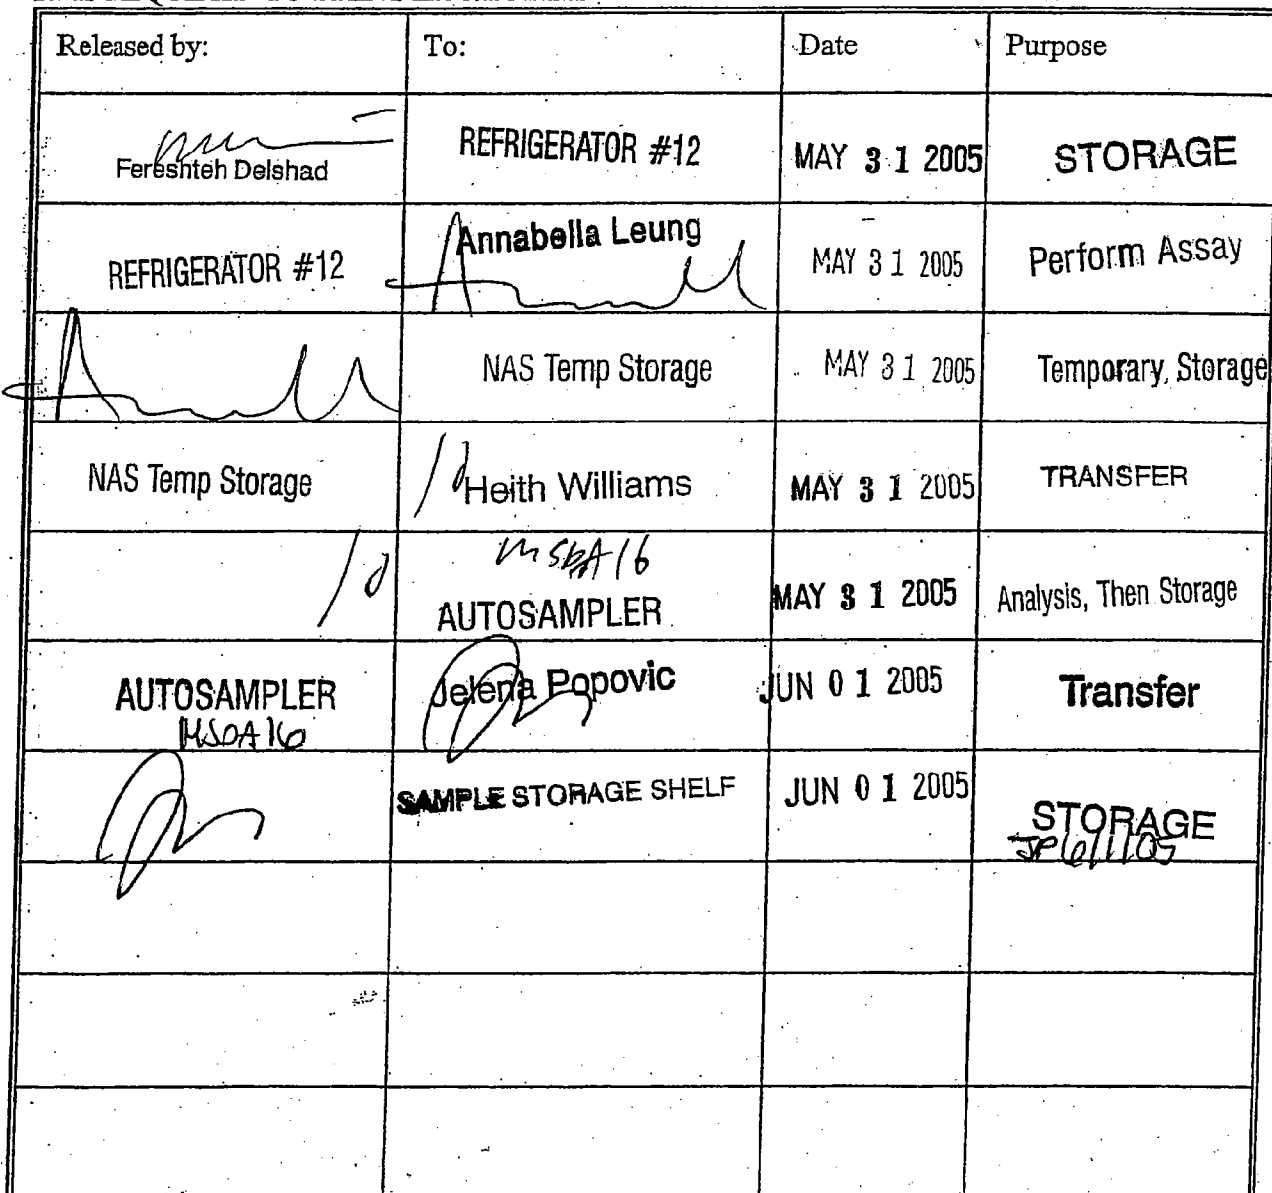 Released by: To: Date Purpose
Fereshteh Delshad REFRIGERATOR #12 MAY 31 2005 STORAGE
REFRIGERATOR #12 Annabella Leung MAY 31 2005 Perform Assay
NAS Temp Storage MAY 31 2005 Temporary, Storage
NAS Temp Storage Heith Williams MAY 31 2005 TRANSFER
MSDA16
AUTOSAMPLER MAY 31 2005 Analysis, Then Storage
AUTOSAMPLER Jelena Popovic JUN 01 2005 Transfer
MSDA16
SAMPLE STORAGE SHELF JUN 01 2005 STORAGE
JP 6/1/05